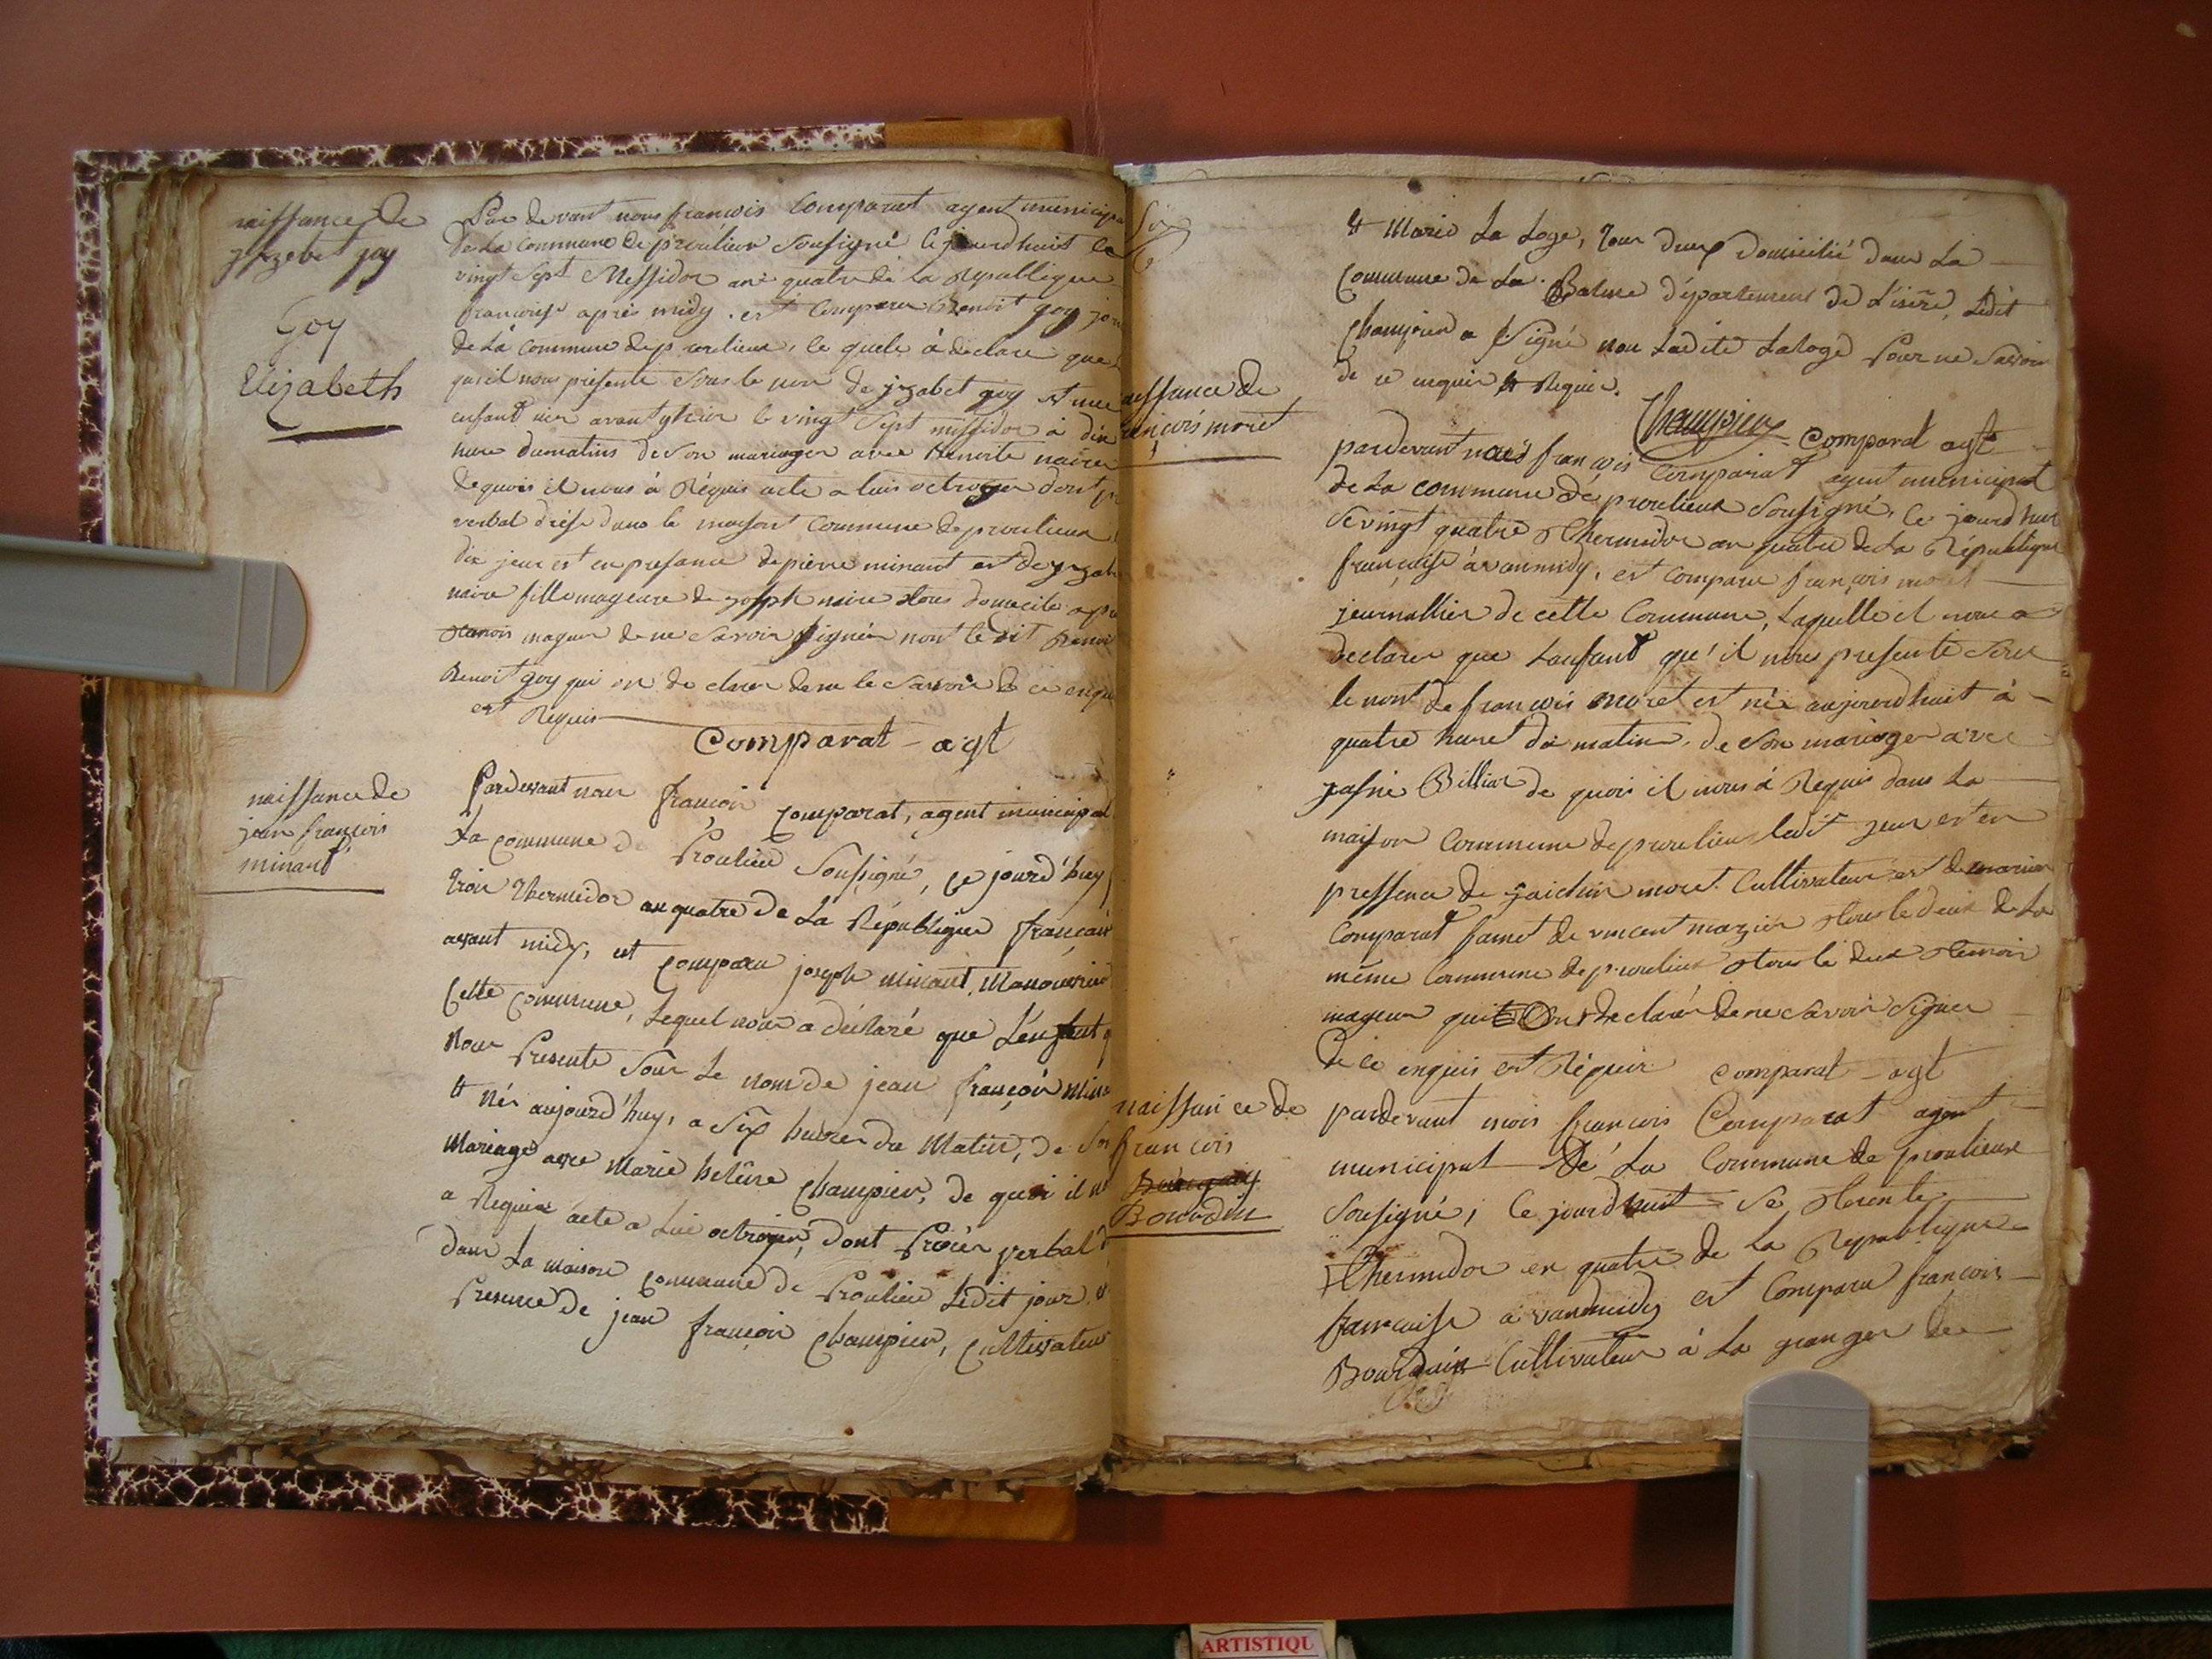 naissance de
jzabet goy
Goy
Elizabeth
Par devant nous françois Comparat agent municip
de La Commune de proulieux Sousigné le jourdhuit le
vingt Sept Messidor an quatre de La Republique
françoise après midy. est Comparu Benoit goy jou
de La Commune de proulieux, le quele à declare que
qu'il nous présente Sous le nom de jzabet goy est nee
enfant avant ÿhier le vingt Sept messidor à dix
hure dumatins de Son mariager avec Benoite naire
de quois il nous à Réquis acte a luis octroyer dont
verbal drésé dans le maison Commune de proulieux
dix jour est en presance de pierre minant est de jzab
naire fille mageure de joseph naire tous domecile
temois mageur de ne Savoir Signér nont le dit Benoi
Benoit goy qui on declarer de ne le Savoir de ce enqu
est Requis
Comparat - agt
naissance de
jean françois
minant
Pardevant nous françois Comparat, agent municipal
La Commune de Proulieu Soussigné, ce jourd'huy
trois Thermidor an quatre de La République françois
avant midy, est Comparu joseph minant, Manouvrier
Cette Commune, Lequel nous a déclaré que L'enfant q
Nous Presente Sous Le nom de jean françois Mina
Et Néz aujourd'huy, a Six heures du Matin, de Son
Mariage avec Marie helène Champier, de quoi il no
a Requis acte a Lui octroyer, dont Procès verbal
dans La maison Commune de Proulieu Ledit jour, et
Presence de jean françois Champier, Cultivateur
Six
Et Marie La Loge, Tous deux domicilié dans La
Commune de La Balme Département de L'isère, Ledit
Champier a Signé non Ladite Laloge Pour ne Savoir
de ce enquis et Requis.
Champier Comparat agt
naissance de
françois moret
pardevant nous françois Comparat agent municipal
de La commune de proulieux Sousigné, le jourdhui
Se vingt quatre Thermidor an quatre de La République
française avanmidy, est Comparu françois moret
journallier de cette Commune, Laquelle il nous a
declarer que Lanfant qu'il nous presente Sous
le nont de françois moret est néz aujourdhuit à
quatre hure du matin, de Son mariager avec
Billiar de quois il nous à Requis dans La
maison Commune de proulieu ledit jour est en
pressence de moret Cultivateur est de
Comparat famet de vincent mazier tous le deux de La
même Commune de proulieux tous le deux temois
mageur qui Ont declarér de ne Savoir Signer
De ce enquis est Réquis Comparat - agt
naissance de
francois
Bourdin
pardevant mois francois Comparat agent
municipal De La Commune de proulieux
Sousigné, le jourdhuit Se trente
Thermidor en quatre de La Republique
francaise avandmidy est Comparu francois
Bourdain Cultivateur à La granger de
ARTISTIQU